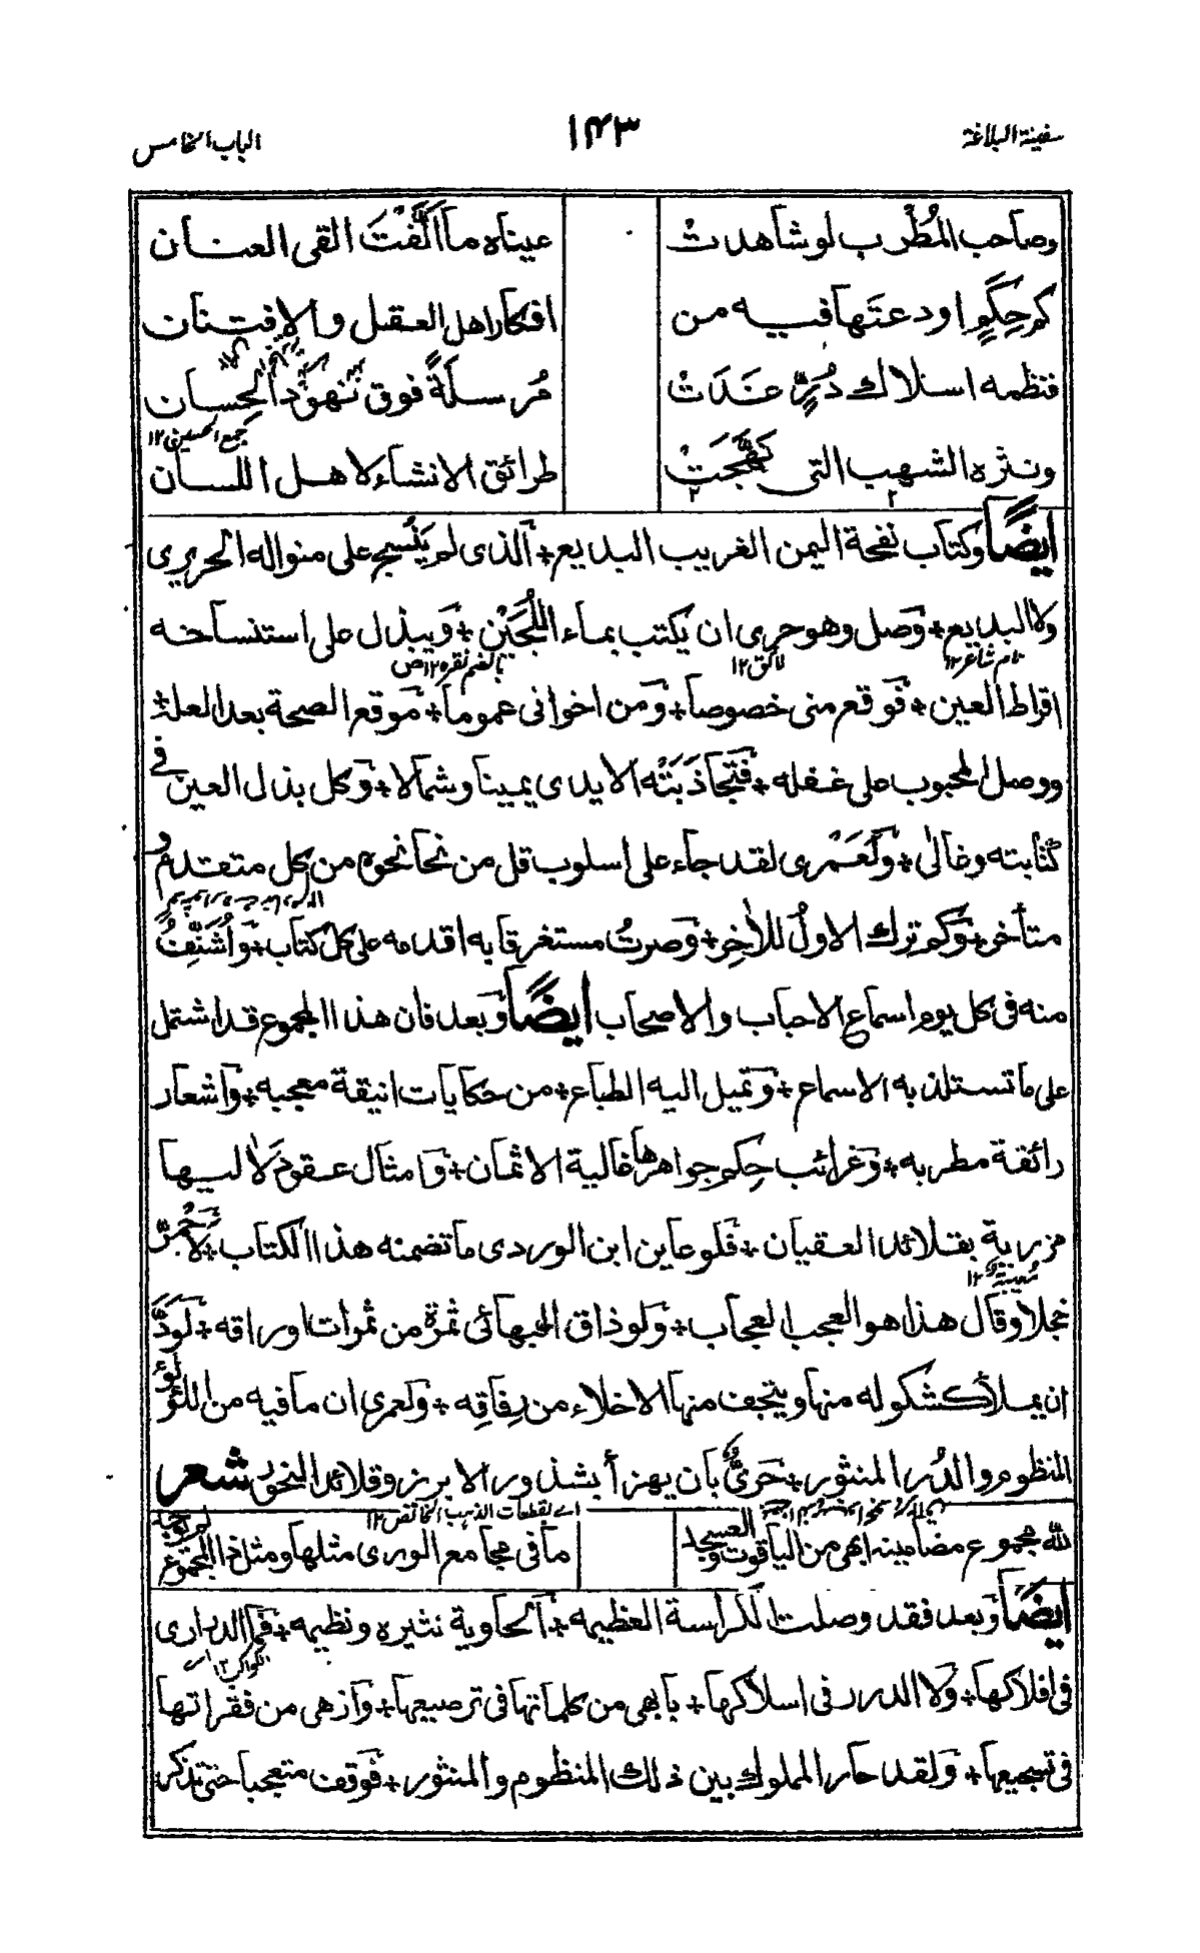 سفينة البلاغة ١٤٣ الباب الخامس
وصاحب المُطرب لو شاهدتْ عيناه ما اَلَّفْتَ القى العنان
كم حِكَمٍ اودعتَها فيه من افكار اهل العقل والافتنان
فنظمه اسلاك دُرٍّ غَدَتْ مُرسلةً فوق نهود الحِسان
جمع الحسين ١٢
ونثره الشهب التى نَهَّجَتْ طرائق الانشاء لاهل اللسان
ايضًا وكتاب نفحة اليمن الغريب البديع + الذى لم يَنْسِج على منواله الحريرى
ولا البديع + وَصل وهو حرى ان يكتب بماء اللُّجَيْن + وَيبذل على استنساخه
نام شاعر ١٢ لائق ١٢ بالضم نقره ١٢ ص
اقراط العين + فَوقع منى خصوصا + وَمن اخوانى عموما + مَوقع الصحة بعد العلة +
ووصل المحبوب على غفله + فَتَجاذَبَتْه الايدى يمينا وشمالا + وَكل بذل العين فى
كتابته وغالى + وَلَعَمْرى لقد جاء على اسلوب قل من نحا نحوه من كل متقدم و
متأخر + وَكم ترك الاولُ للاٰخِر + وَصرتُ مستغرقا به اقدمه على كل كتاب + وَاُشَنِّفُ
منه فى كل يوم اسماع الاحباب والاصحاب ايضًا وَبعد فان هذا المجموع قد اشتمل
على ما تستلذ به الاسماع + وَتميل اليه الطباع + من حكايات انيقة معجبه + وَاشعار
رائقة مطربه + وَغرائب حِكم جواهرها غالية الاثمان + وَامثال عقود لَاٰليها
مزرية بقلائد العقيان + فَلو عاين ابن الوردى ما تضمنه هذا الكتاب + لَاحْمَرَّ
خجلا وقال هذا هو العجب العجاب + وَلو ذاق البهائى ثمرة من ثمرات اوراقه + لَوَدَّ
ان يملأ كشكوله منها ويتحف منها الاخلاء من رِفاقِه + وَلعمرى ان ما فيه من اللؤلؤ
المنظوم والدُر المنثور + حَرِىٌّ بأن يهزأ بشذور الابريز وقلائد النحور شعر
اے بقطعات الذهب الخالص ١٢
لله مجموع مضامينه ابهى من الياقوت والعسجد ما فى مجامع الورى مثلها ومثل ذا المجموع
ايضًا وَبعد فقد وصلت الكراسة العظيمه + اَلحاوية نثيره ونظيمه + فَما الدرارى
اى الكواكب ١٢
فى افلاكها + وَلا الدرر فى اسلاكها + بأبهى من كلماتها فى ترصيعها + وَازهى من فقراتها
فى تسجيعها + وَلقد حار المملوك بين ذلك المنظوم والمنثور + فَوقف متعجبا حتى تذكر